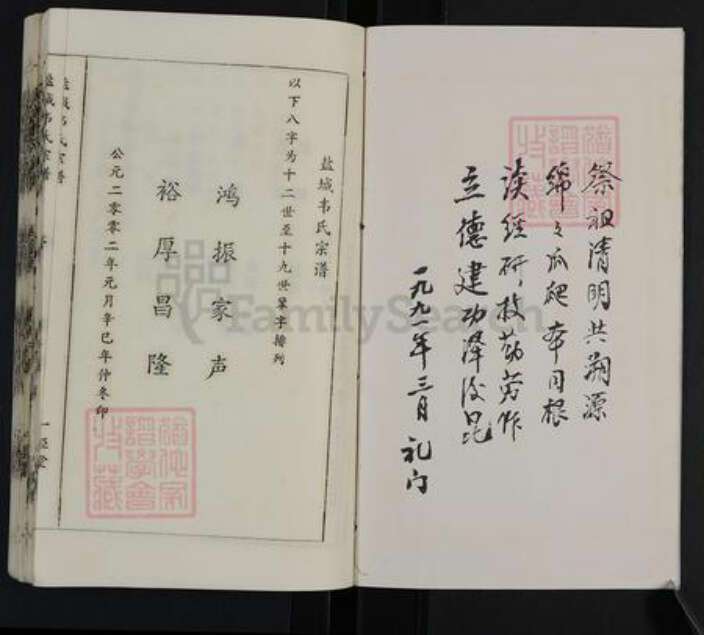 祭祖清明共溯源
绵々瓜瓞本同根
读经研技勤劳作
立德建功泽后昆
一九九一年三月 礼门
盐城韦氏宗谱
以下八字为十二世至十九世辈字排列
鸿振家声
裕厚昌隆
公元二零零二年元月辛巳年仲冬印
盐城韦氏宗谱
FamilySearch